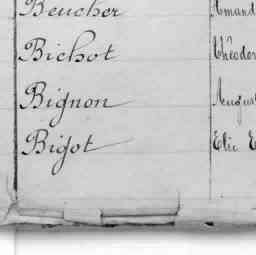 Beucher Amand
Bichot Théodor
Bignon August
Bigot Elie E